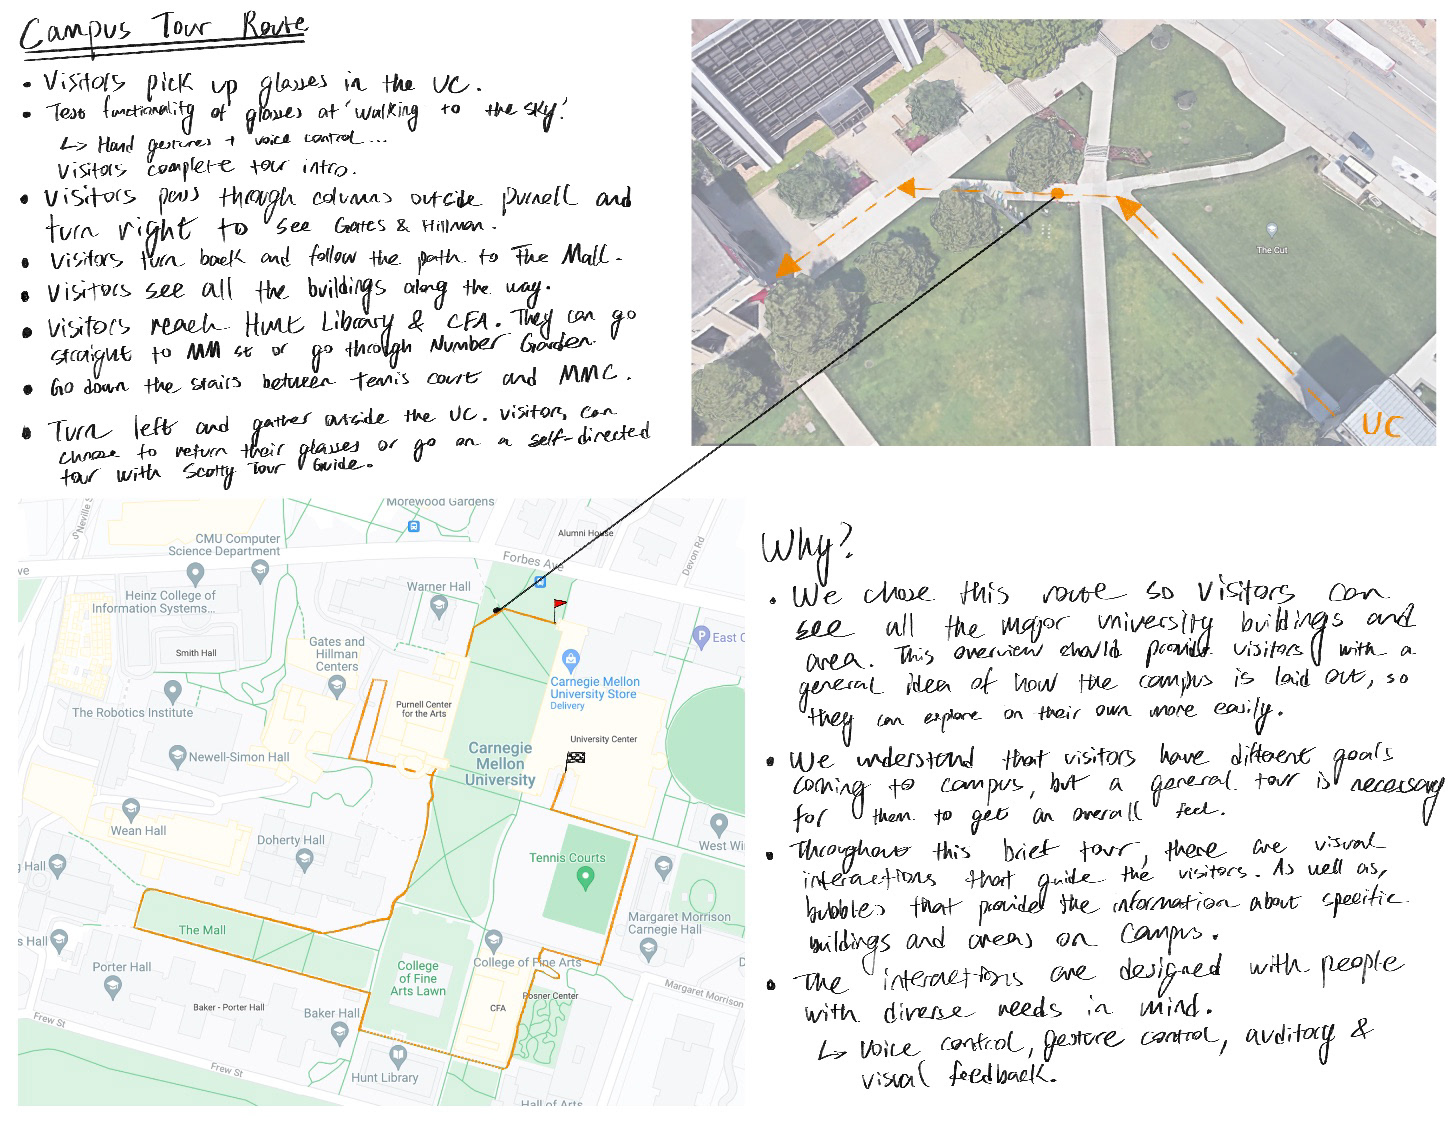 Campus Tour Route
• Visitors pick up glasses in the UC.
• Test functionality of glasses at 'Walking to the sky'.
↳ Hand gestures + voice control...
Visitors complete tour intro.
• Visitors pass through columns outside Purnell and
turn right to see Gates & Hillman.
• Visitors turn back and follow the path to The Mall.
• Visitors see all the buildings along the way.
• Visitors reach Hunt Library & CFA. They can go
straight to MM st or go through Number Garden.
• Go down the stairs between tennis court and MMC.
• Turn left and gather outside the UC. Visitors can
choose to return their glasses or go on a self-directed
tour with Scotty Tour Guide.
The Cut
UC
Morewood Gardens
S Neville S
CMU Computer
Science Department
Alumni House
Devon Rd
Forbes Ave
ve
Heinz College of
Information Systems...
Warner Hall
East C
Gates and
Hillman Centers
Smith Hall
Carnegie Mellon
University Store
Delivery
The Robotics Institute
Purnell Center
for the Arts
University Center
Newell-Simon Hall
Carnegie
Mellon
University
Wean Hall
Doherty Hall
West Wi
Tennis Courts
g Hall
Margaret Morrison
Carnegie Hall
The Mall
s Hall
Porter Hall
College
of Fine
Arts Lawn
College of Fine Arts
Posner Center
Margaret Morrison
Baker - Porter Hall
Baker Hall
CFA
Frew St
Frew St
Hunt Library
Hall of Arts
Why?
• We chose this route so visitors can
see all the major university buildings and
area. This overview should provide visitors with a
general idea of how the campus is laid out, so
they can explore on their own more easily.
• We understand that visitors have different goals
coming to campus, but a general tour is necessary
for them to get an overall feel.
• Throughout this brief tour, there are visual
interactions that guide the visitors. As well as,
bubbles that provide the information about specific
buildings and areas on campus.
• The interactions are designed with people
with diverse needs in mind.
↳ voice control, gesture control, auditory &
visual feedback.